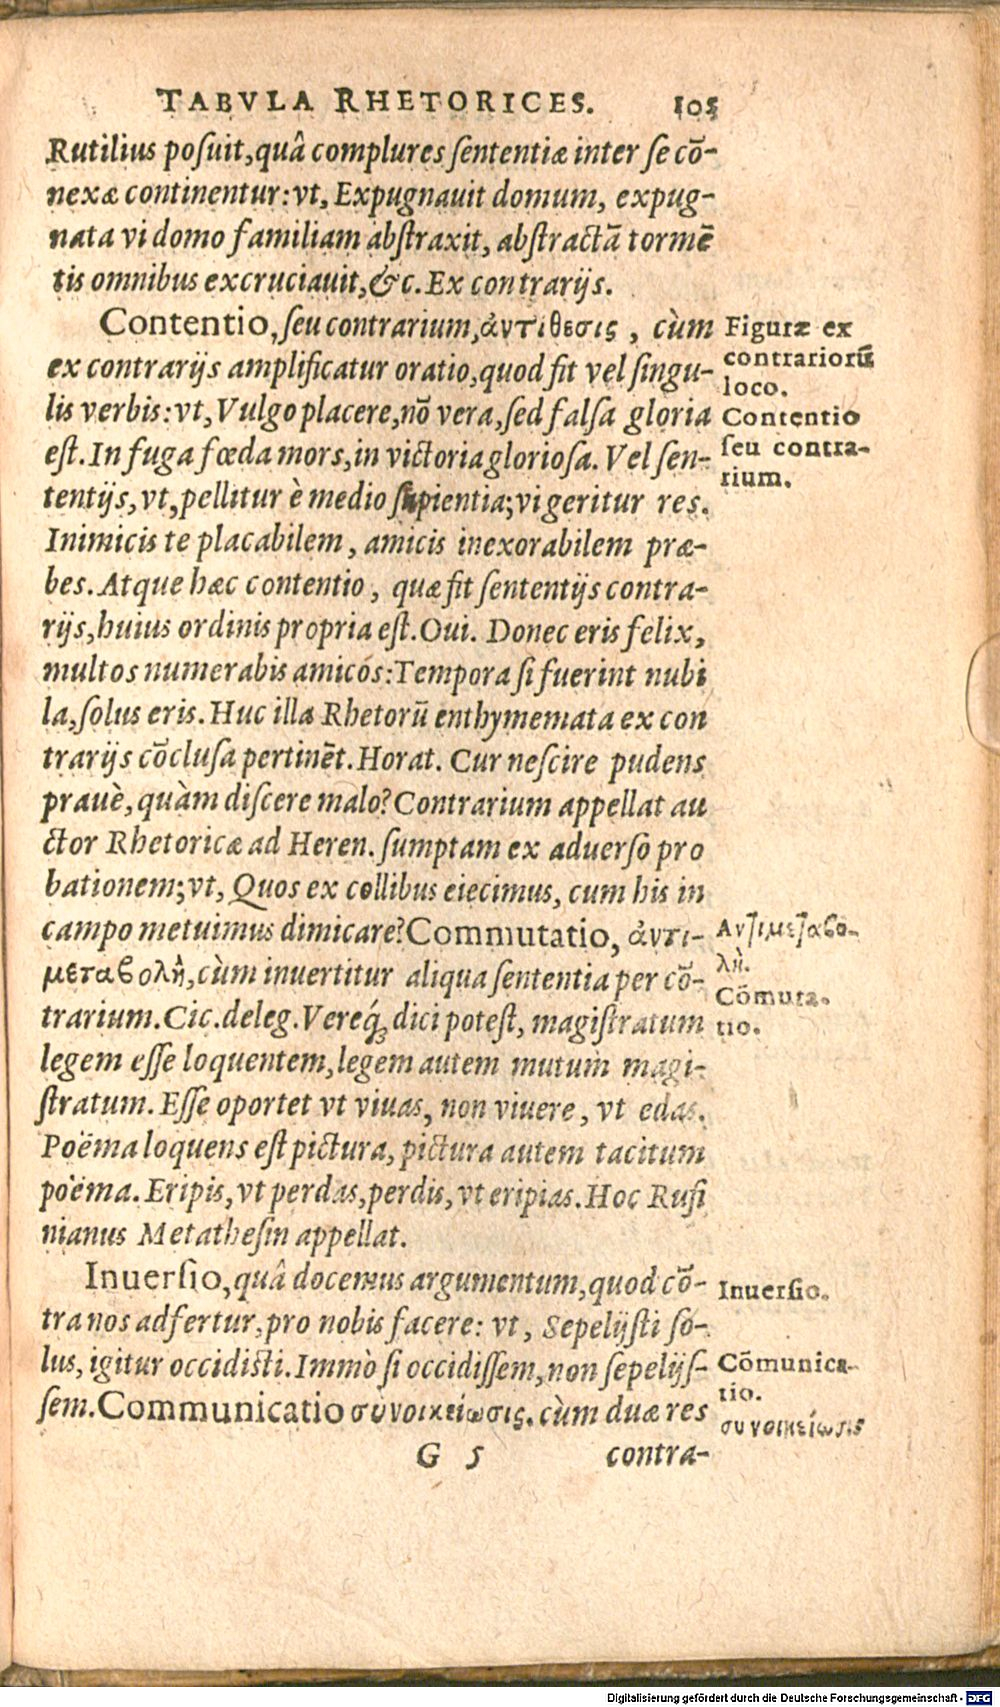 TABVLA RHETORICES. 105
Rutilius posuit, quâ complures sententiæ inter se cō-
nexæ continentur: vt, Expugnauit domum, expug-
nata vi domo familiam abstraxit, abstractā tormē
tis omnibus excruciauit, &c. Ex contrarijs.
Contentio, seu contrarium, ἀντίθεσις, cùm
ex contrarijs amplificatur oratio, quod fit vel singu-
lis verbis: vt, Vulgo placere, nō vera, sed falsa gloria
est. In fuga fœda mors, in victoria gloriosa. Vel sen-
tentijs, vt, pellitur è medio sapientia; vi geritur res.
Inimicis te placabilem, amicis inexorabilem præ-
bes. Atque hæc contentio, quæ fit sententijs contra-
rijs, huius ordinis propria est. Oui. Donec eris felix,
multos numerabis amicos: Tempora si fuerint nubi
la, solus eris. Huc illa Rhetorū enthymemata ex con
trarijs cōclusa pertinēt. Horat. Cur nescire pudens
prauè, quàm discere malo? Contrarium appellat au
ctor Rhetoricæ ad Heren. sumptam ex aduerso pro
bationem; vt, Quos ex collibus eiecimus, cum his in
campo metuimus dimicare? Commutatio, ἀντι-
μεταβολὴ, cùm inuertitur aliqua sententia per cō-
trarium. Cic. de leg. Vereq́; dici potest, magistratum
legem esse loquentem, legem autem mutum magi-
stratum. Esse oportet vt viuas, non viuere, vt edas.
Poëma loquens est pictura, pictura autem tacitum
poëma. Eripis, vt perdas, perdis, vt eripias. Hoc Rufi
nianus Metathesin appellat.
Inuersio, quâ docemus argumentum, quod cō-
tra nos adfertur, pro nobis facere: vt, Sepelijsti so-
lus, igitur occidisti. Immò si occidissem, non sepelijs-
sem. Communicatio συνοικείωσις, cùm duæ res
G 5 contra-
Figuræ ex
contrariorū
loco.
Contentio
seu contra-
rium.
Αντιμεταβο-
λὴ.
Cōmuta-
tio.
Inuersio.
Cōmunica-
tio.
συνοικείωσις
Digitalisierung gefördert durch die Deutsche Forschungsgemeinschaft - DFG